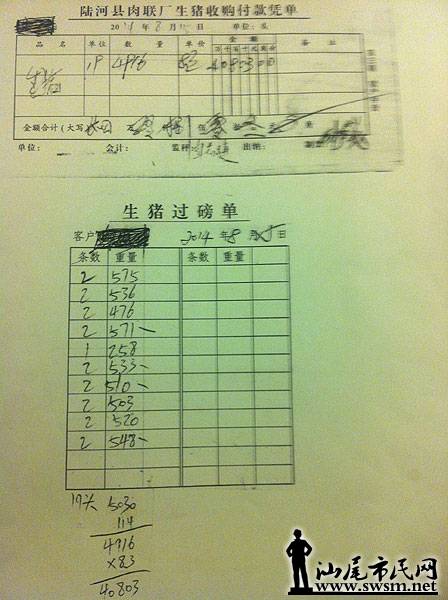 陆河县肉联厂生猪收购付款凭单
2014年8月 日 单位：元
品名 单位 数量 单价 金额 备注
万千百十元角分
生猪 19 4916 4080300
金额合计(大写) 万
单位： 会计： 监秤 出纳：
生猪过磅单
客户 2014年8月 日
条数 重量 条数 重量
2 575
2 536
2 476
2 571
1 258
2 533
2 510
2 503
2 520
2 548
19头 5030
114
4916
×83
40803
汕尾市民网
www.swsm.net